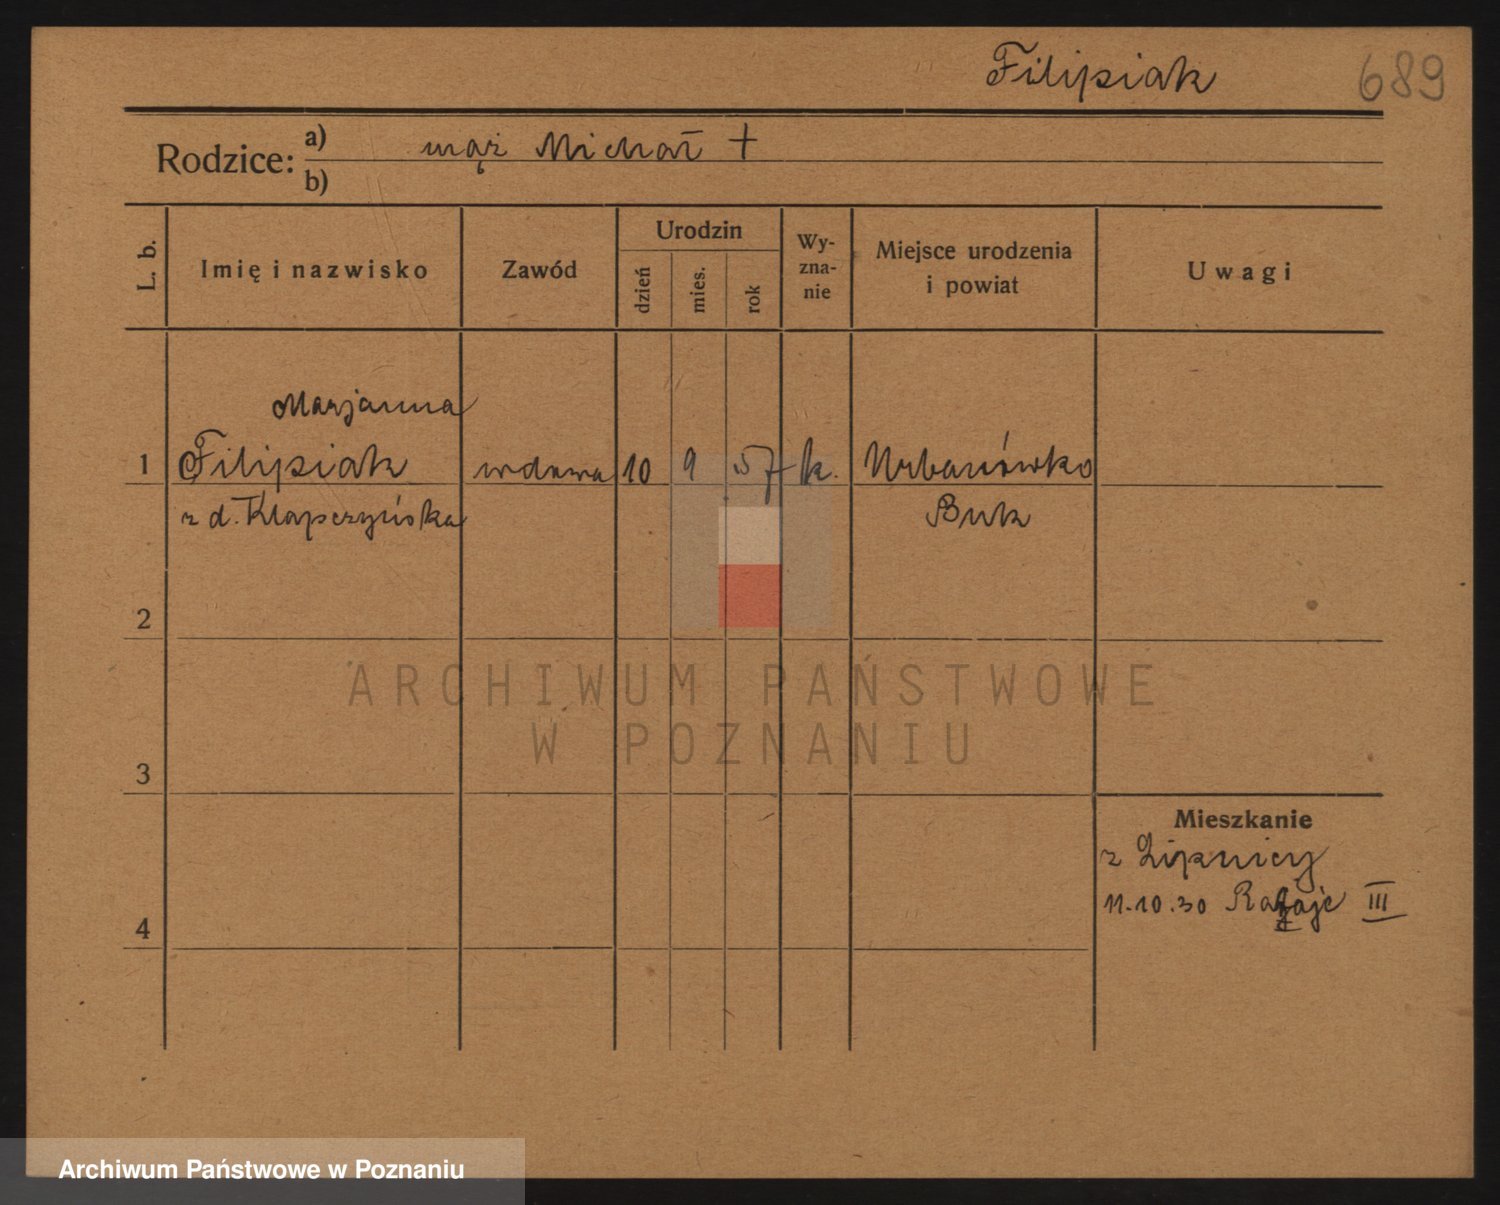 Filipiak 689
Rodzice: a) mąż Michał +
b)
L. b. Imię i nazwisko Zawód Urodzin dzień mies. rok Wy-zna-nie Miejsce urodzenia i powiat Uwagi
Marjanna
1 Filipiak wdowa 10 9 57 k. Urbanówko
z d. Kłapczyńska Buk
2
ARCHIWUM PAŃSTWOWE
W POZNANIU
3
Mieszkanie
z Lipnicy
11.10.30 Rataje III
4
Archiwum Państwowe w Poznaniu